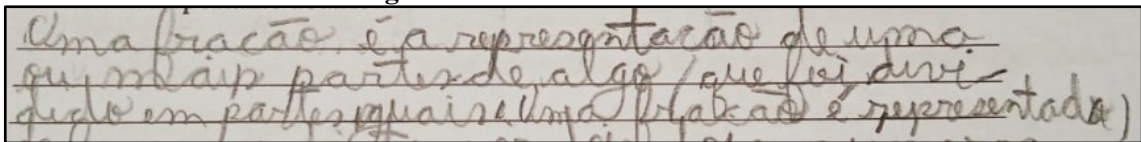 Uma fracão é a represgntacão de uma
ou mais partes de algo, que foi divi-
dido em partes iguais. Uma fracão é representada)